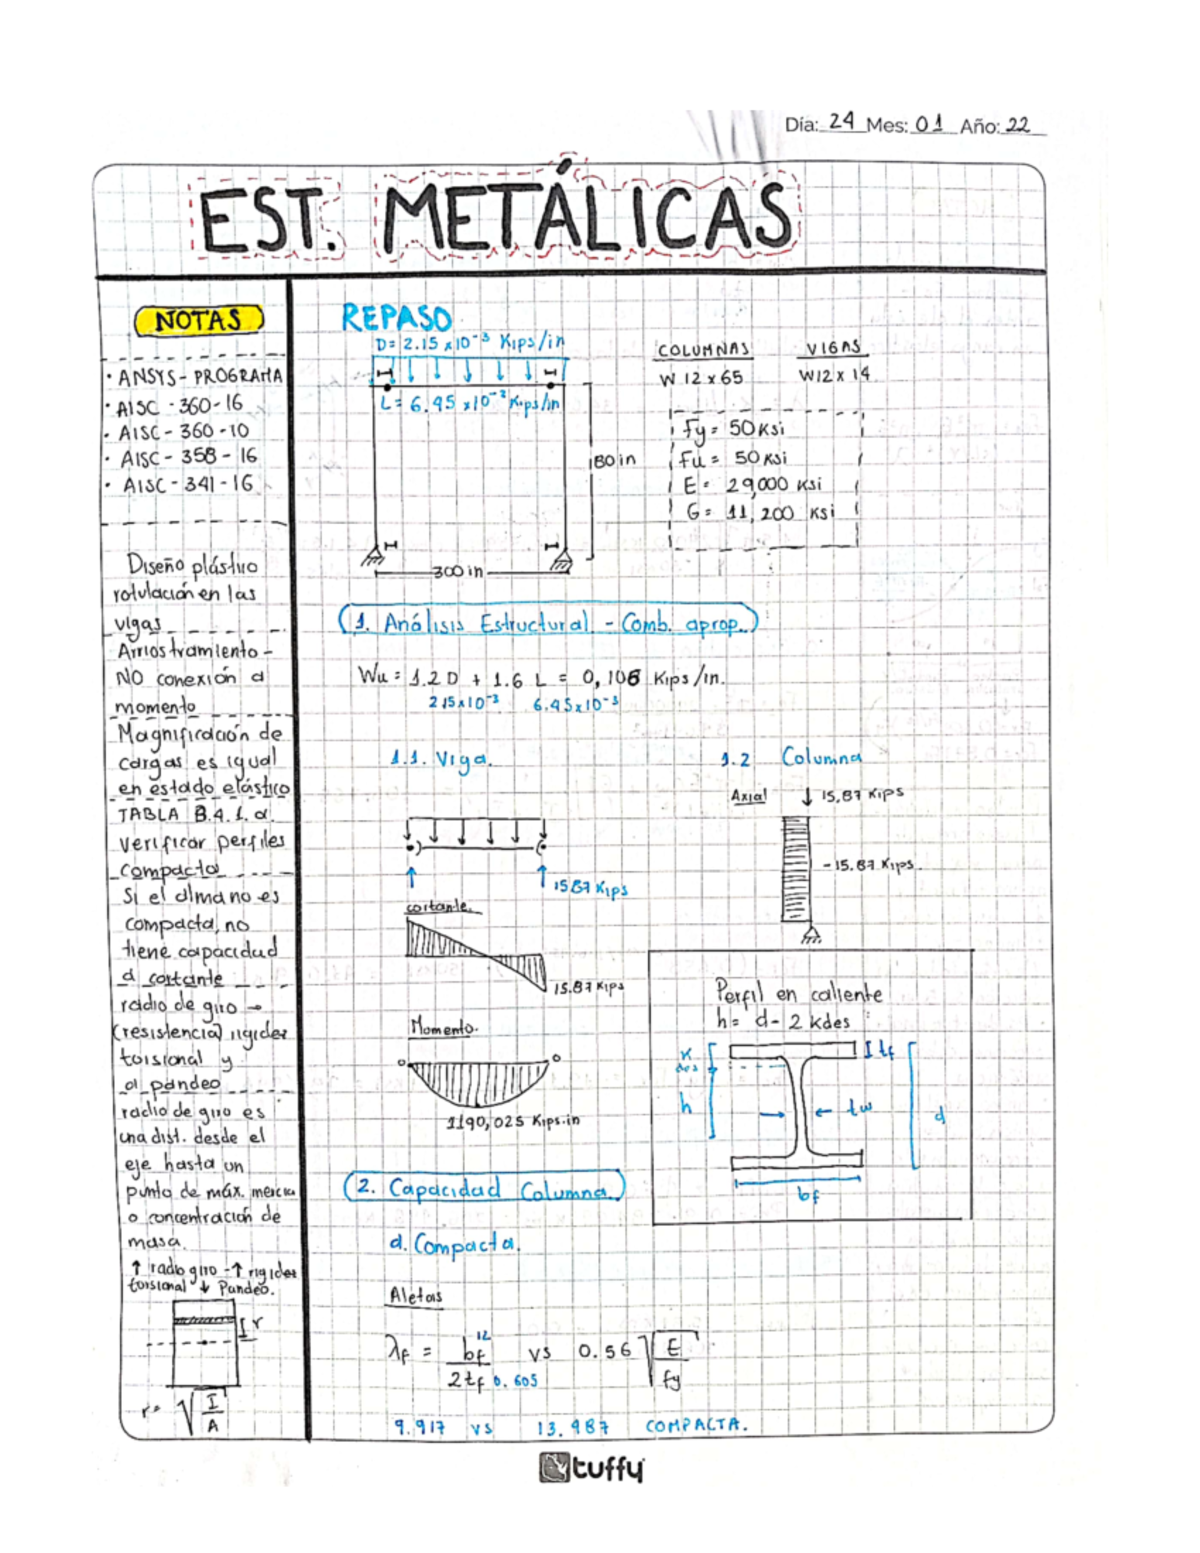 Día: 24 Mes: 01 Año: 22
EST. METÁLICAS
NOTAS
· ANSYS - PROGRAMA
· AISC - 360-16
· AISC - 360-10
· AISC - 358 - 16
· AISC - 341 - 16
Diseño plástico
rotulación en las
vigas
Arriostramiento -
NO conexión a
momento
Magnificación de
cargas es igual
en estado elástico
TABLA B.4.1.a
verificar perfiles
compacta
Si el alma no es
compacta, no
tiene capacidad
a cortante
radio de giro →
(resistencia) rigidez
torsional y
al pandeo
radio de giro es
una dist. desde el
eje hasta un
punto de máx. inercia
o concentración de
masa.
↑ radio giro - ↑ rigidez
torsional ↓ Pandeo.
r
r = √ I
A
REPASO
D= 2.15 x10⁻³ Kips/in
L= 6.45 x10⁻² Kips/in
180 in
300 in
COLUMNAS VIGAS
W 12 x 65 W12 x 14
Fy = 50 Ksi
Fu = 50 Ksi
E = 29,000 Ksi
G = 11,200 Ksi
1. Análisis Estructural - Comb. aprop.
Wu = 1.2 D + 1.6 L = 0,106 Kips/in.
2.15x10⁻³ 6.45x10⁻³
1.1. Viga. 1.2 Columna
Axial ↓ 15,87 Kips
15.87 Kips
- 15.87 Kips
cortante.
15.87 Kips
Momento.
0 0
1190,025 Kips.in
Perfil en caliente
h = d - 2 Kdes
K des
tf
h
tw
d
bf
2. Capacidad Columna.
a. Compacta.
Aletas
λf = bf 12 vs 0.56 √ E
2tf 0.605 fy
9.917 vs 13.487 COMPACTA.
tuffy